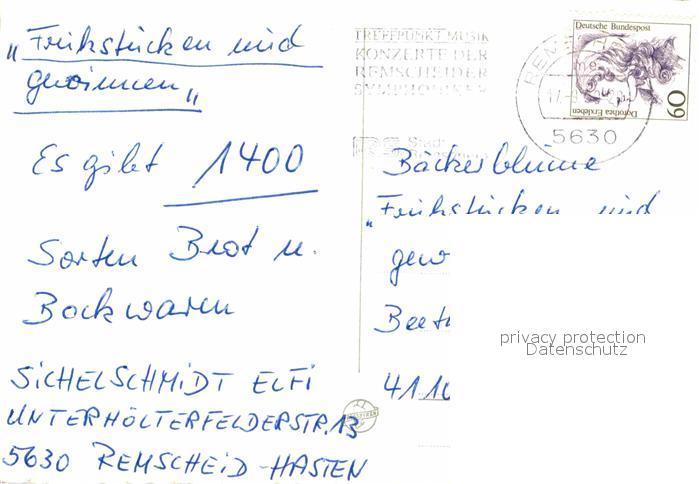 „Frühstücken und
gewinnen"
Es gibt 1400
Sorten Brot u.
Backwaren
SICHELSCHMIDT ELFI
UNTERHÖLTERFELDERSTR.13
5630 REMSCHEID-HASTEN
TREFFPUNKT MUSIK
KONZERTE DER
REMSCHEIDER
SYMPHONIKER
Stadt
5630
Deutsche Bundespost
Dorothea Erxleben
60
Bäckerblume
„Frühstücken und
gew
Beet
41 10
privacy protection
Datenschutz